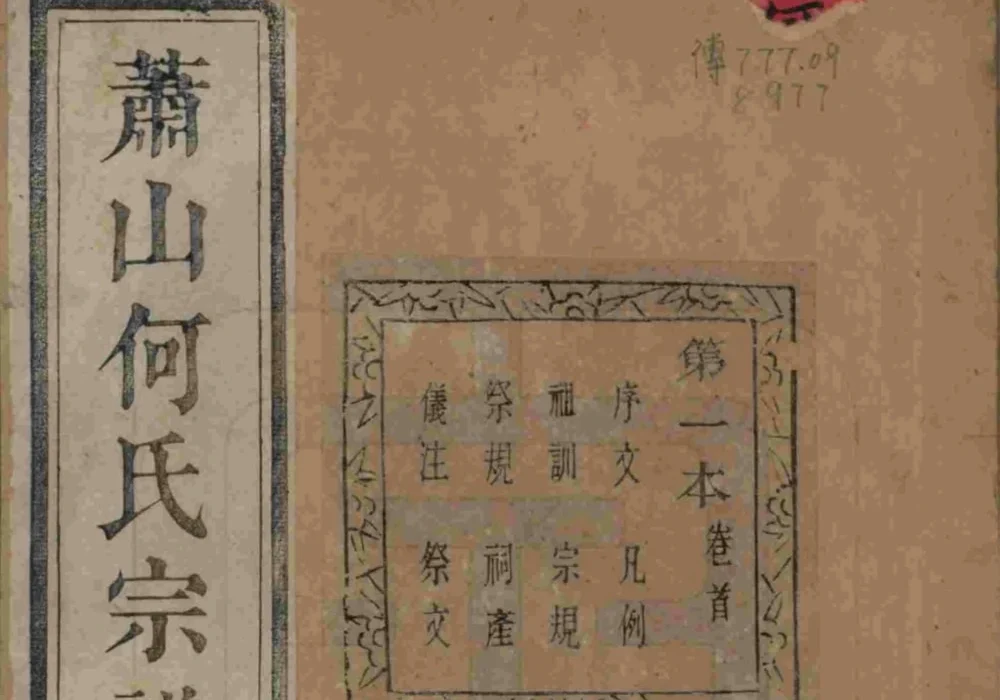 傳777.09
8977
第一本 卷首
序文 凡例
祖訓 宗規
祭規 祠產
儀注 祭文
蕭山何氏宗